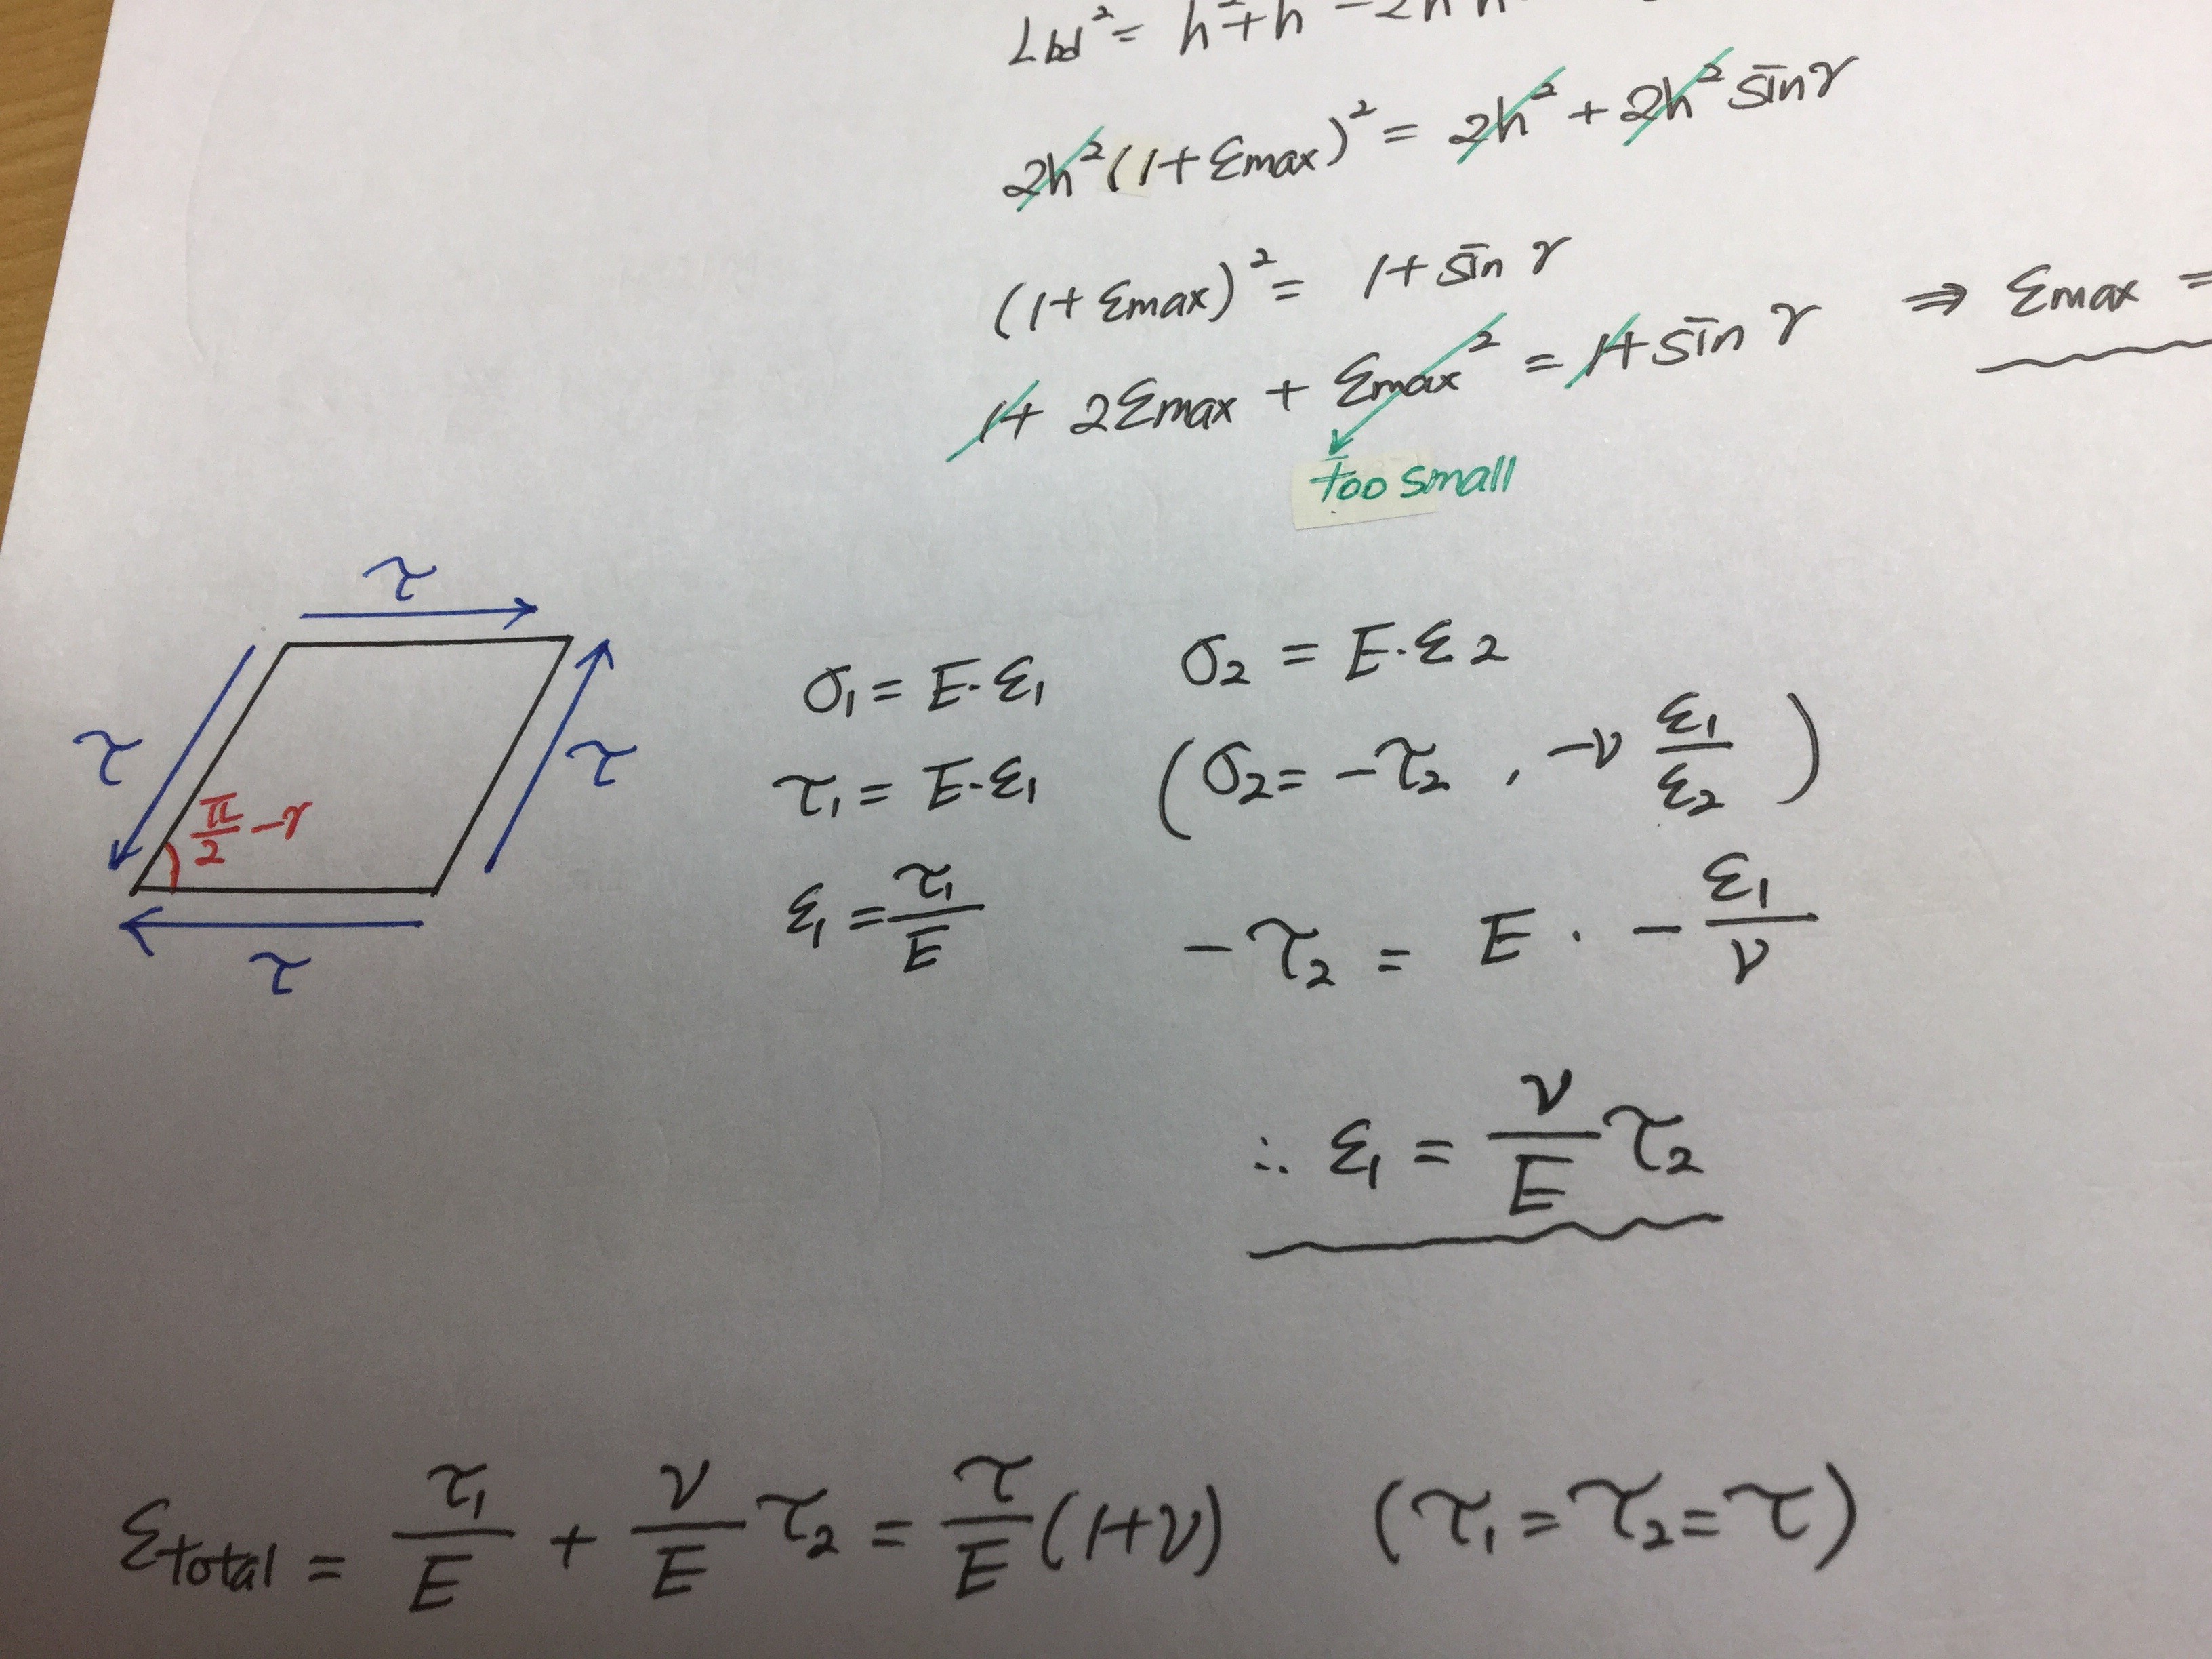 Lbd² = h² + h² - 2h h
2h²(1+εmax)² = 2h² + 2h² sinγ
(1+εmax)² = 1+sinγ
1+ 2εmax + εmax² = 1+sinγ ⇒ εmax =
too small
τ
τ
τ
π/2 -γ
τ
σ1 = E·ε1
τ1 = E·ε1
ε1 = τ1/E
σ2 = E·ε2
(σ2 = -τ2 , -ν ε1/ε2)
-τ2 = E · - ε1/ν
∴ ε1 = ν/E τ2
εtotal = τ1/E + ν/E τ2 = τ/E (1+ν) (τ1=τ2=τ)